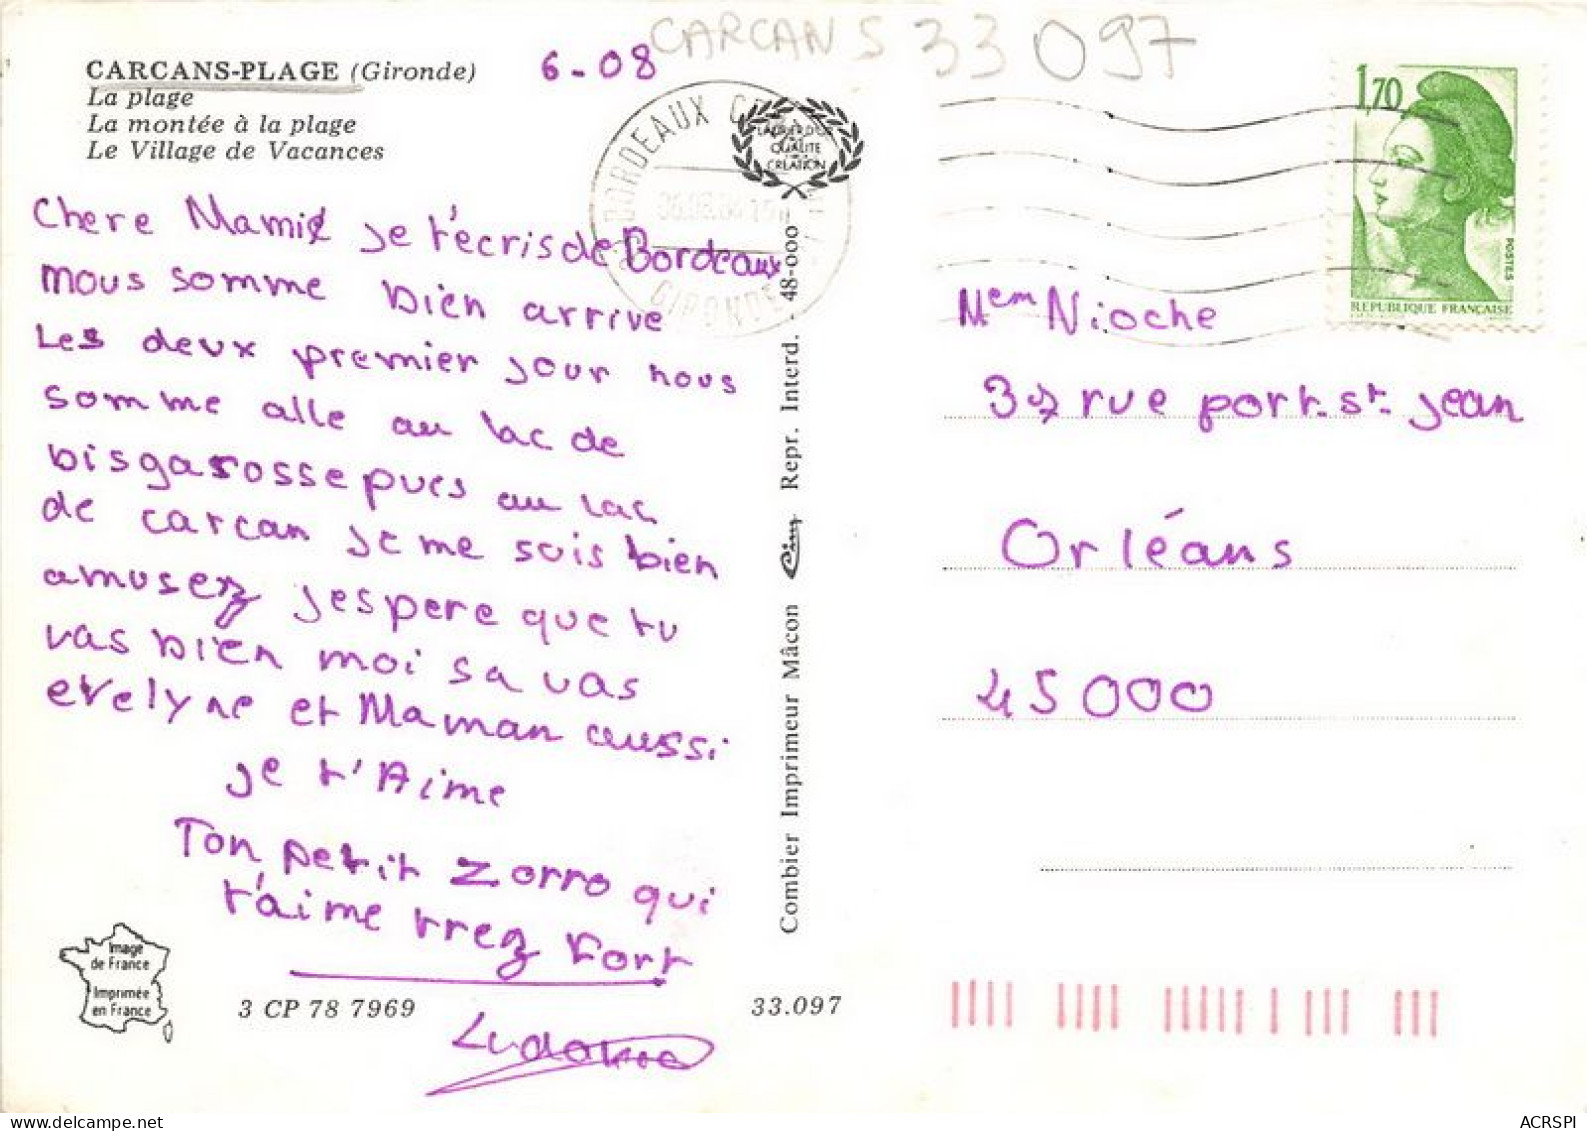 CARCANS 33 097
CARCANS-PLAGE (Gironde)
La plage
La montée à la plage
Le Village de Vacances
6-08
BORDEAUX
GIRONDE
LAURIER D'OR
QUALITE
CREATION
1,70
POSTES
REPUBLIQUE FRANÇAISE
Chere Mamie je t'ecris de Bordeaux
nous somme bien arrive
Les deux premier jour nous
somme alle au lac de
bisgarosse pues au lac
de carcan je me suis bien
amusez jespere que tu
vas bien moi sa vas
evelyne et Maman aussi
je t'Aime
Ton petit zorro qui
t'aime trrez fort
Ludovic
Mem Nioche
37 rue port-st-jean
Orléans
45000
Combier Imprimeur Mâcon Cim Repr. Interd. 48-000
Image
de France
Imprimée
en France
3 CP 78 7969
33.097
ACRSPI